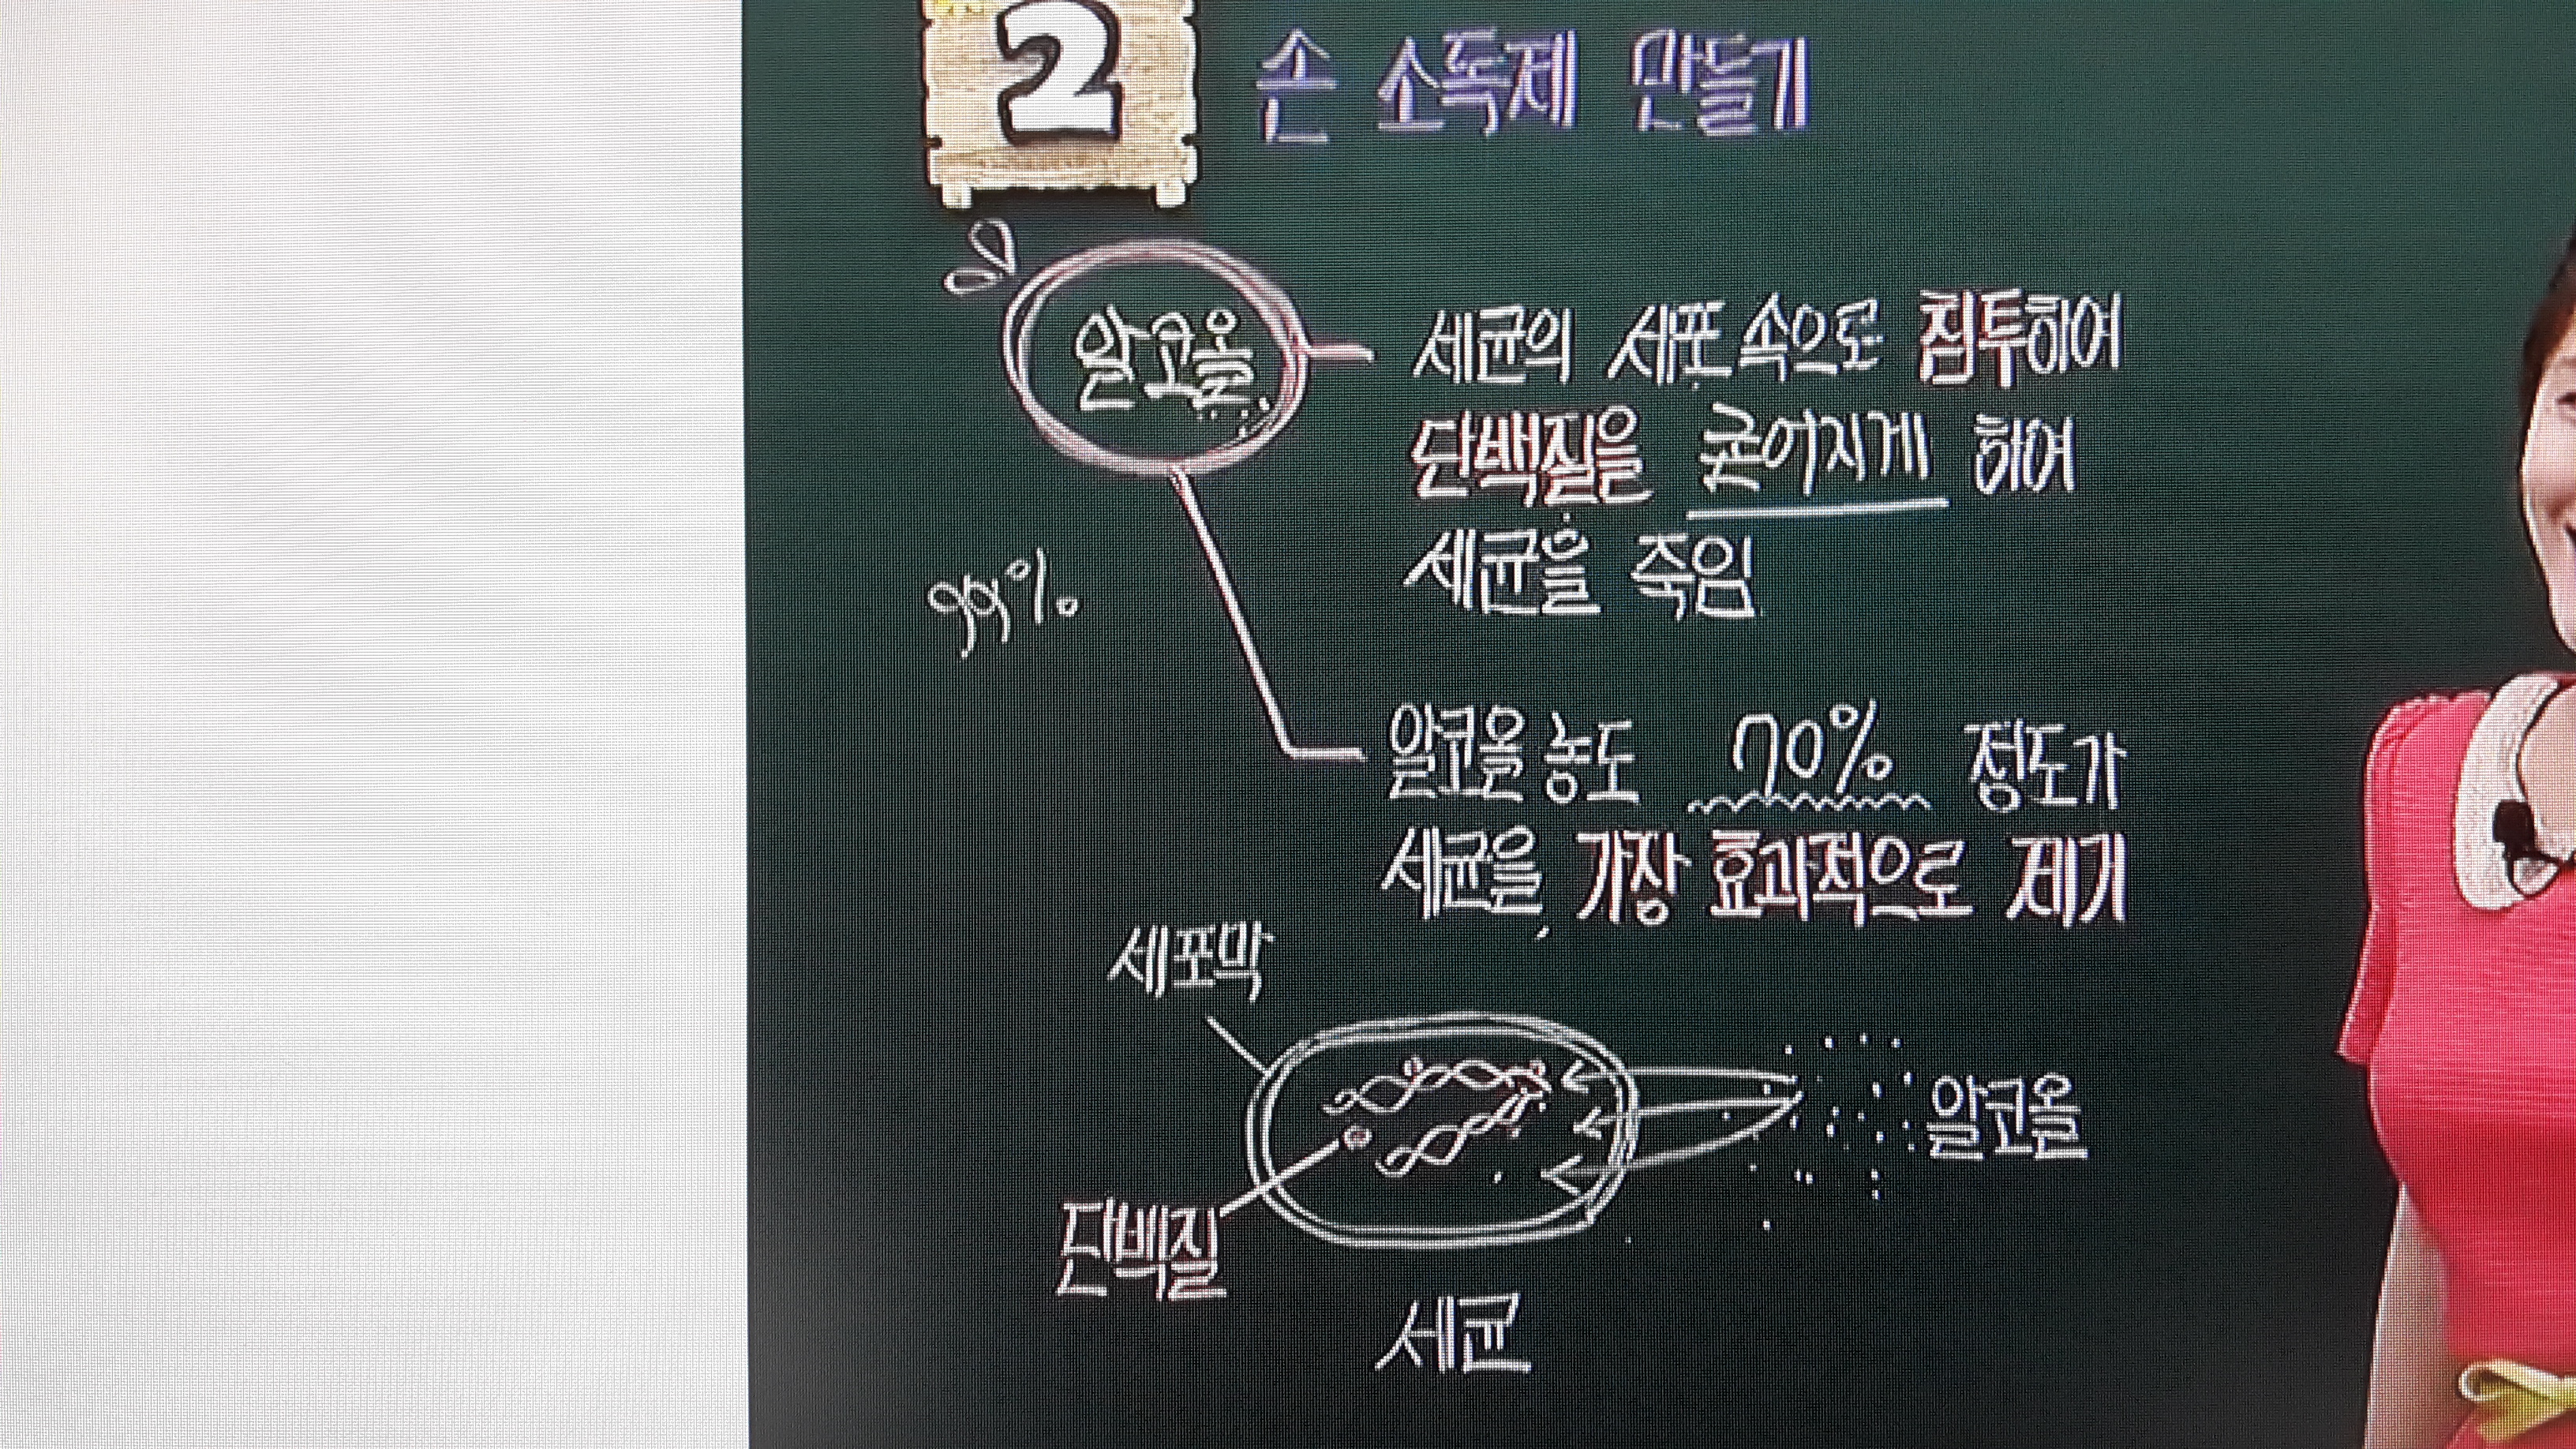 2 손 소독제 만들기
알코올
세균의 세포 속으로 침투하여
단백질을 굳어지게 하여
세균을 죽임
99%
알코올 농도 70% 정도가
세균을 가장 효과적으로 제거
세포막
알코올
단백질
세균